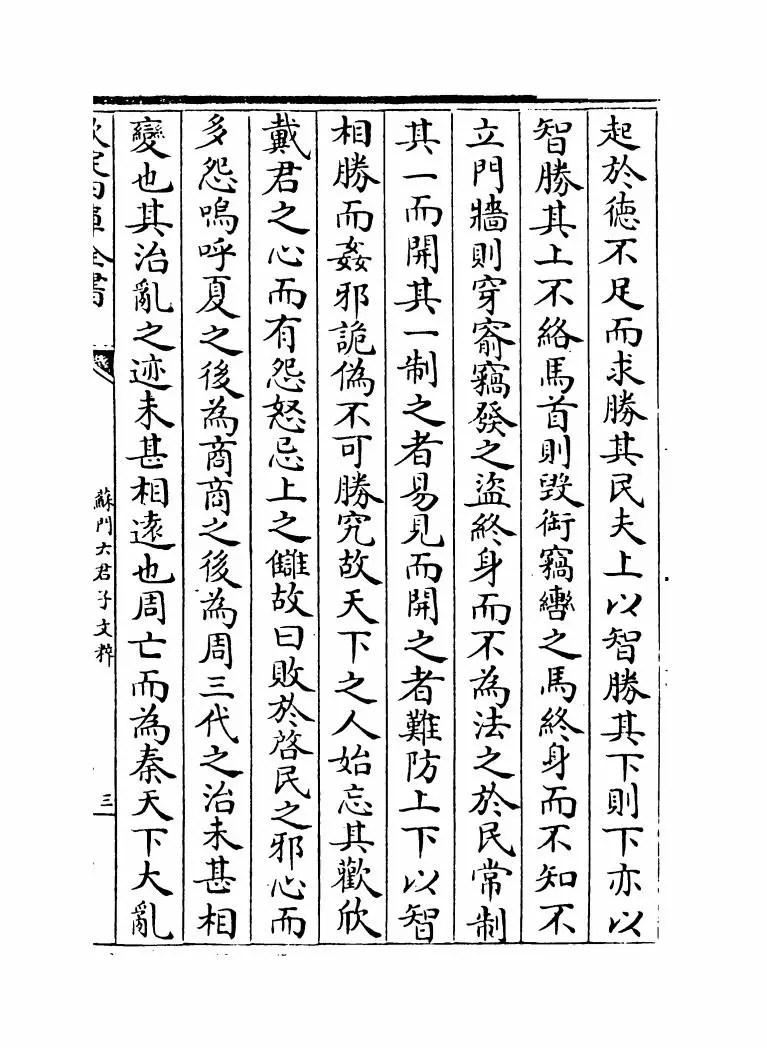 起於徳不足而求勝其民夫上以智勝其下則下亦以
智勝其上不絡馬首則毀銜竊轡之馬終身而不知不
立門牆則穿窬竊發之盜終身而不為法之於民常制
其一而開其一制之者易見而開之者難防上下以智
相勝而姦邪詭偽不可勝究故天下之人始忘其歡欣
戴君之心而有怨怒忌上之讎故曰敗於啓民之邪心而
多怨嗚呼夏之後為商商之後為周三代之治未甚相
變也其治亂之迹未甚相遠也周亡而為秦天下大亂
欽定四庫全書
蘇門六君子文粹
三